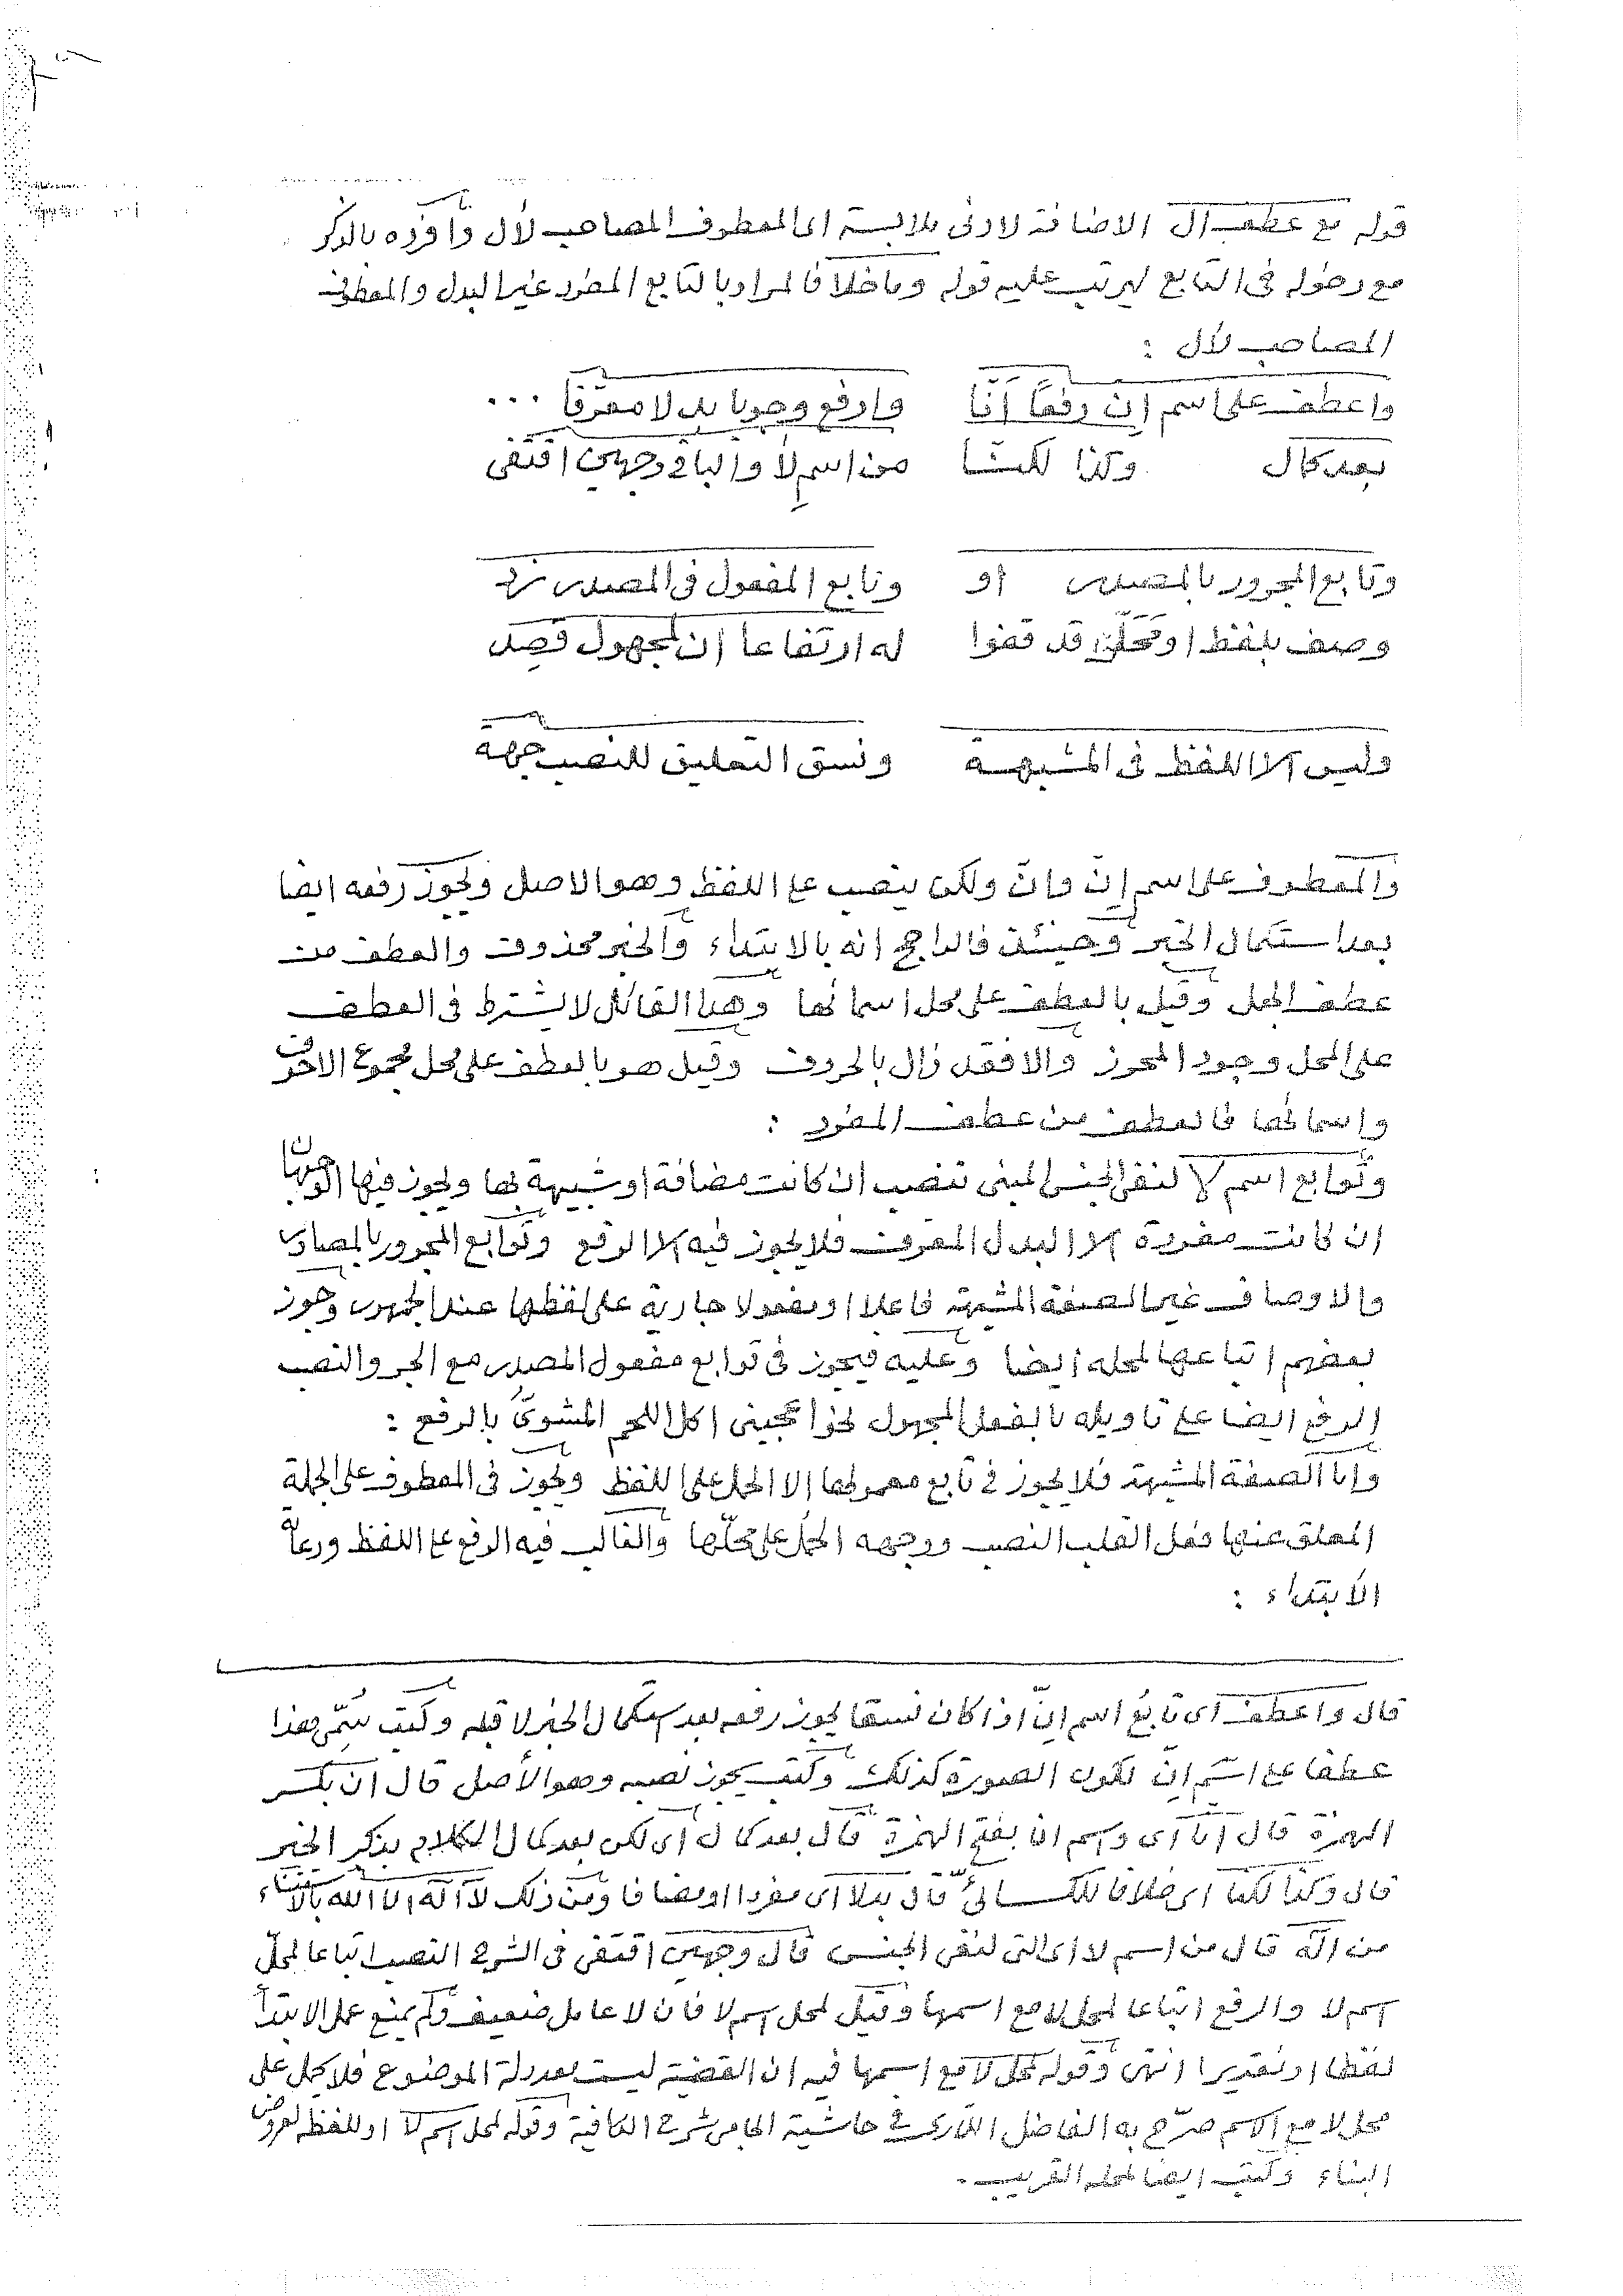 قوله مع عطف أل الاضافة لادنى ملابسة اى المعطوف المصاحب لأل وأفرده بالذكر
مع دخوله فى التابع ليرتب عليه قوله وما خلا فالمراد بالتابع المفرد غير البدل والمعطوف
المصاحب لأل :
واعطف على اسم إن رفعًا أنّا وارفع وجوبا بدلا معرّفا ...
بعد كمال وكذا لكنّا من اسمِ لا والباقى وجهين اقتفى
وتابع المجرور بالمصدر أو وتابع المفعول فى المصدر زد
وصف بلفظ او محلّ قد قفوا له ارتفاعا ان لمجهول قصد
وليس الا اللفظ فى المشبهة ونسق التعليق للنصب جهة
والمعطوف على اسم إنّ وأنّ ولكن ينصب على اللفظ وهو الاصل ويجوز رفعه ايضا
بعد استكمال الخبر وحينئذ فالراجح انه بالابتداء والخبر محذوف والعطف من
عطف الجمل وقيل بالعطف على محل اسمائها وهذا القائل لا يشترط فى العطف
على المحل وجود المحرز والا فقد زال بالحروف وقيل هو بالعطف على محل مجموع الاحرف
واسمائها فالعطف من عطف المفرد :
وتوابع اسم لا لنفى الجنس المبنى تنصب ان كانت مضافة او شبيهة بها ويجوز فيها الوجهان
ان كانت مفردة الا البدل المعرف فلا يجوز فيه الا الرفع وتوابع المجرور بالمصادر
والاوصاف غير الصفة المشبهة فاعلا او مفعولا جارية على لفظها عند الجمهور وجوز
بعضهم اتباعها لمحله ايضا وعليه فيجوز فى توابع مفعول المصدر مع الجر والنصب
الرفع ايضا على تاويله بالفعل المجهول نحو اعجبنى اكل اللحم المشوىُّ بالرفع :
واما الصفة المشبهة فلا يجوز فى تابع معمولها الا الحمل على اللفظ ويجوز فى المعطوف على الجملة
المعلق عنها فعل القلب النصب ووجهه الحمل على محلّها والغالب فيه الرفع على اللفظ ورعاية
الابتداء :
قال واعطف اى تابعُ اسم انّ اذا كان نسقا يجوز رفعه بعد استكمال الخبر لا قبله وكتب سُمّى هذا
عطفا على اسم انّ لكون الصورة كذلك وكتب يجوز نصبه وهو الأصل قال ان بكسر
الهمزة قال انّا اى واسم انا بفتح الهمزة قال بعد كمال اى لكن بعد كمال الكلام بذكر الخبر
قال وكذا لكنّا اى خلافا للكسائىّ قال بدلا اى مفردا او مضافا ومن ذلك لا اله الا الله بالاستثناء
من اله قال من اسم لا اى التى لنفى الجنس قال وجهين اقتفى فى الشرح النصب اتباعا لمحلّ
اسم لا والرفع اتباعا لمحل لا مع اسمها وقيل لمحل اسم لا فان لا عامل ضعيف ولم يمنع عمل الابتدأ
لفظا او تقديرا انتهى وقوله محل لا مع اسمها فيه ان القضية ليست معدولة الموضوع فلا يحمل على
محل لا مع الاسم صرّح به الفاضل اللارى فى حاشية الجامى شرح الكافية وقوله لمحل اسم لا او للفظه لعروض
البناء وكتب ايضا لمحله القريب .